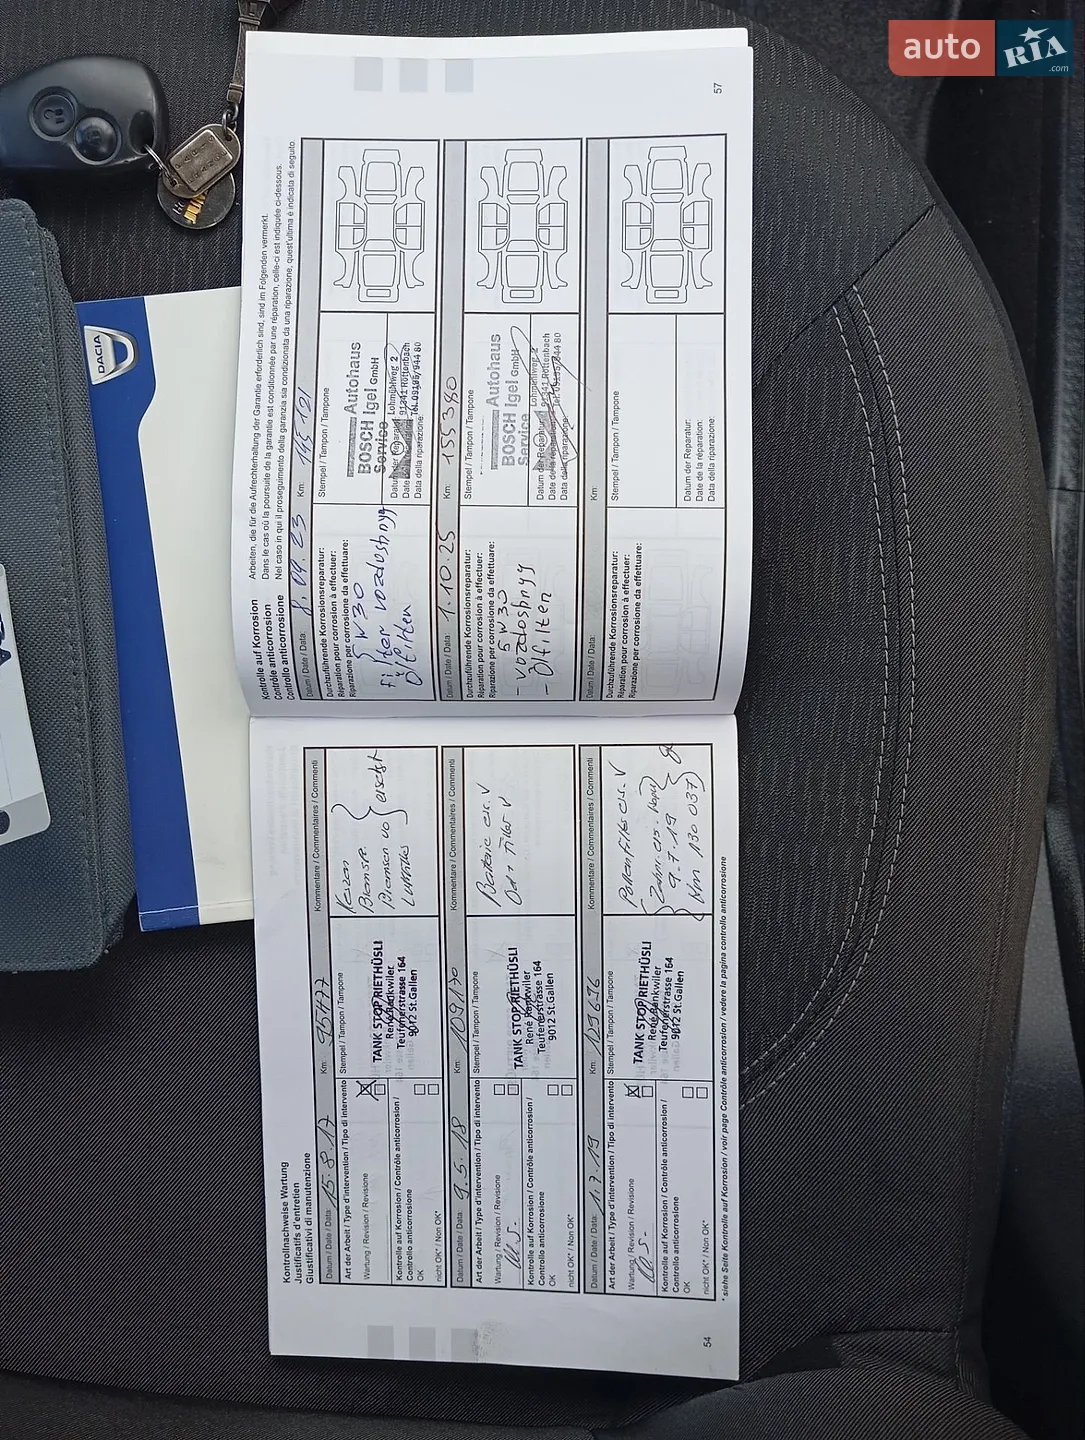 auto
RIA
.com
DACIA
Kontrollnachweise Wartung
Justificatifs d'entretien
Giustificativi di manutenzione
Datum / Date / Data: 15.8.17 Km: 95477 Kommentare / Commentaires / Commenti
Art der Arbeit / Type d'intervention / Tipo di intervento
Stempel / Tampon / Tampone
Wartung / Revision / Revisione
Kontrolle auf Korrosion / Contrôle anticorrosion /
Controllo anticorrosione
OK
nicht OK* / Non OK*
TANK STOP RIETHÜSLI
René Rankwiler
Teufenerstrasse 164
9012 St.Gallen
Bremsen vo
ersetzt
Datum / Date / Data: 9.5.18 Km: 109170 Kommentare / Commentaires / Commenti
Art der Arbeit / Type d'intervention / Tipo di intervento
Stempel / Tampon / Tampone
Wartung / Revision / Revisione
Kontrolle auf Korrosion / Contrôle anticorrosion /
Controllo anticorrosione
OK
nicht OK* / Non OK*
TANK STOP RIETHÜSLI
René Rankwiler
Teufenerstrasse 164
9012 St.Gallen
Batterie ers. V
Oel + Filter V
Datum / Date / Data: 1.7.19 Km: 129696 Kommentare / Commentaires / Commenti
Art der Arbeit / Type d'intervention / Tipo di intervento
Stempel / Tampon / Tampone
Wartung / Revision / Revisione
Kontrolle auf Korrosion / Contrôle anticorrosion /
Controllo anticorrosione
OK
nicht OK* / Non OK*
TANK STOP RIETHÜSLI
René Rankwiler
Teufenerstrasse 164
9012 St.Gallen
Pollenfilter ers. V
9.7.19
Km 130 037
* siehe Seite Kontrolle auf Korrosion / voir page Contrôle anticorrosion / vedere la pagina controllo anticorrosione
54
Kontrolle auf Korrosion
Contrôle anticorrosion
Controllo anticorrosione
Arbeiten, die für die Aufrechterhaltung der Garantie erforderlich sind, sind im Folgenden vermerkt.
Dans le cas où la poursuite de la garantie est conditionnée par une réparation, celle-ci est indiquée ci-dessous.
Nel caso in qui il proseguimento della garanzia sia condizionata da una riparazione, quest'ultima è indicata di seguito.
Datum / Date / Data: 8.09.23 Km: 145 121
Durchzuführende Korrosionsreparatur:
Réparation pour corrosion à effectuer:
Riparazione per corrosione da effettuare:
5W30
filter vozdoshnyy
Ölfilten
Stempel / Tampon / Tampone
Autohaus
BOSCH Igel GmbH
Service
Lohmühlweg 2
91341 Röttenbach
Tel. 09195/944 80
Datum der Reparatur:
Date de la réparation:
Data della riparazione:
Datum / Date / Data: 1.10.25 Km: 155380
Durchzuführende Korrosionsreparatur:
Réparation pour corrosion à effectuer:
Riparazione per corrosione da effettuare:
5W30
- vozdoshnyy
- Ölfilten
Stempel / Tampon / Tampone
Autohaus
BOSCH Igel GmbH
Service
Lohmühlweg 2
91341 Röttenbach
Tel. 09195/944 80
Datum der Reparatur:
Date de la réparation:
Data della riparazione:
Datum / Date / Data: Km:
Durchzuführende Korrosionsreparatur:
Réparation pour corrosion à effectuer:
Riparazione per corrosione da effettuare:
Stempel / Tampon / Tampone
Datum der Reparatur:
Date de la réparation:
Data della riparazione:
57